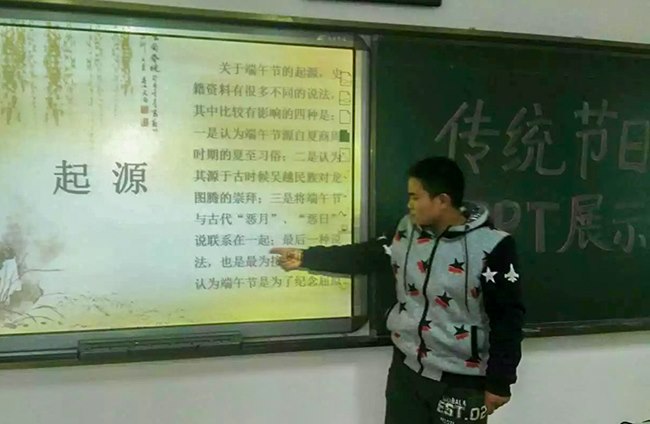 起源
关于端午节的起源，史
籍资料有很多不同的说法，
其中比较有影响的四种是：
一是认为端午节源自夏商周
时期的夏至习俗；二是认为
其源于古时候吴越民族对龙
图腾的崇拜；三是将端午节
与古代“恶月”、“恶日”
说联系在一起；最后一种说
法，也是最为
认为端午节是为了纪念屈原
传统节日
PT展示
EST.02